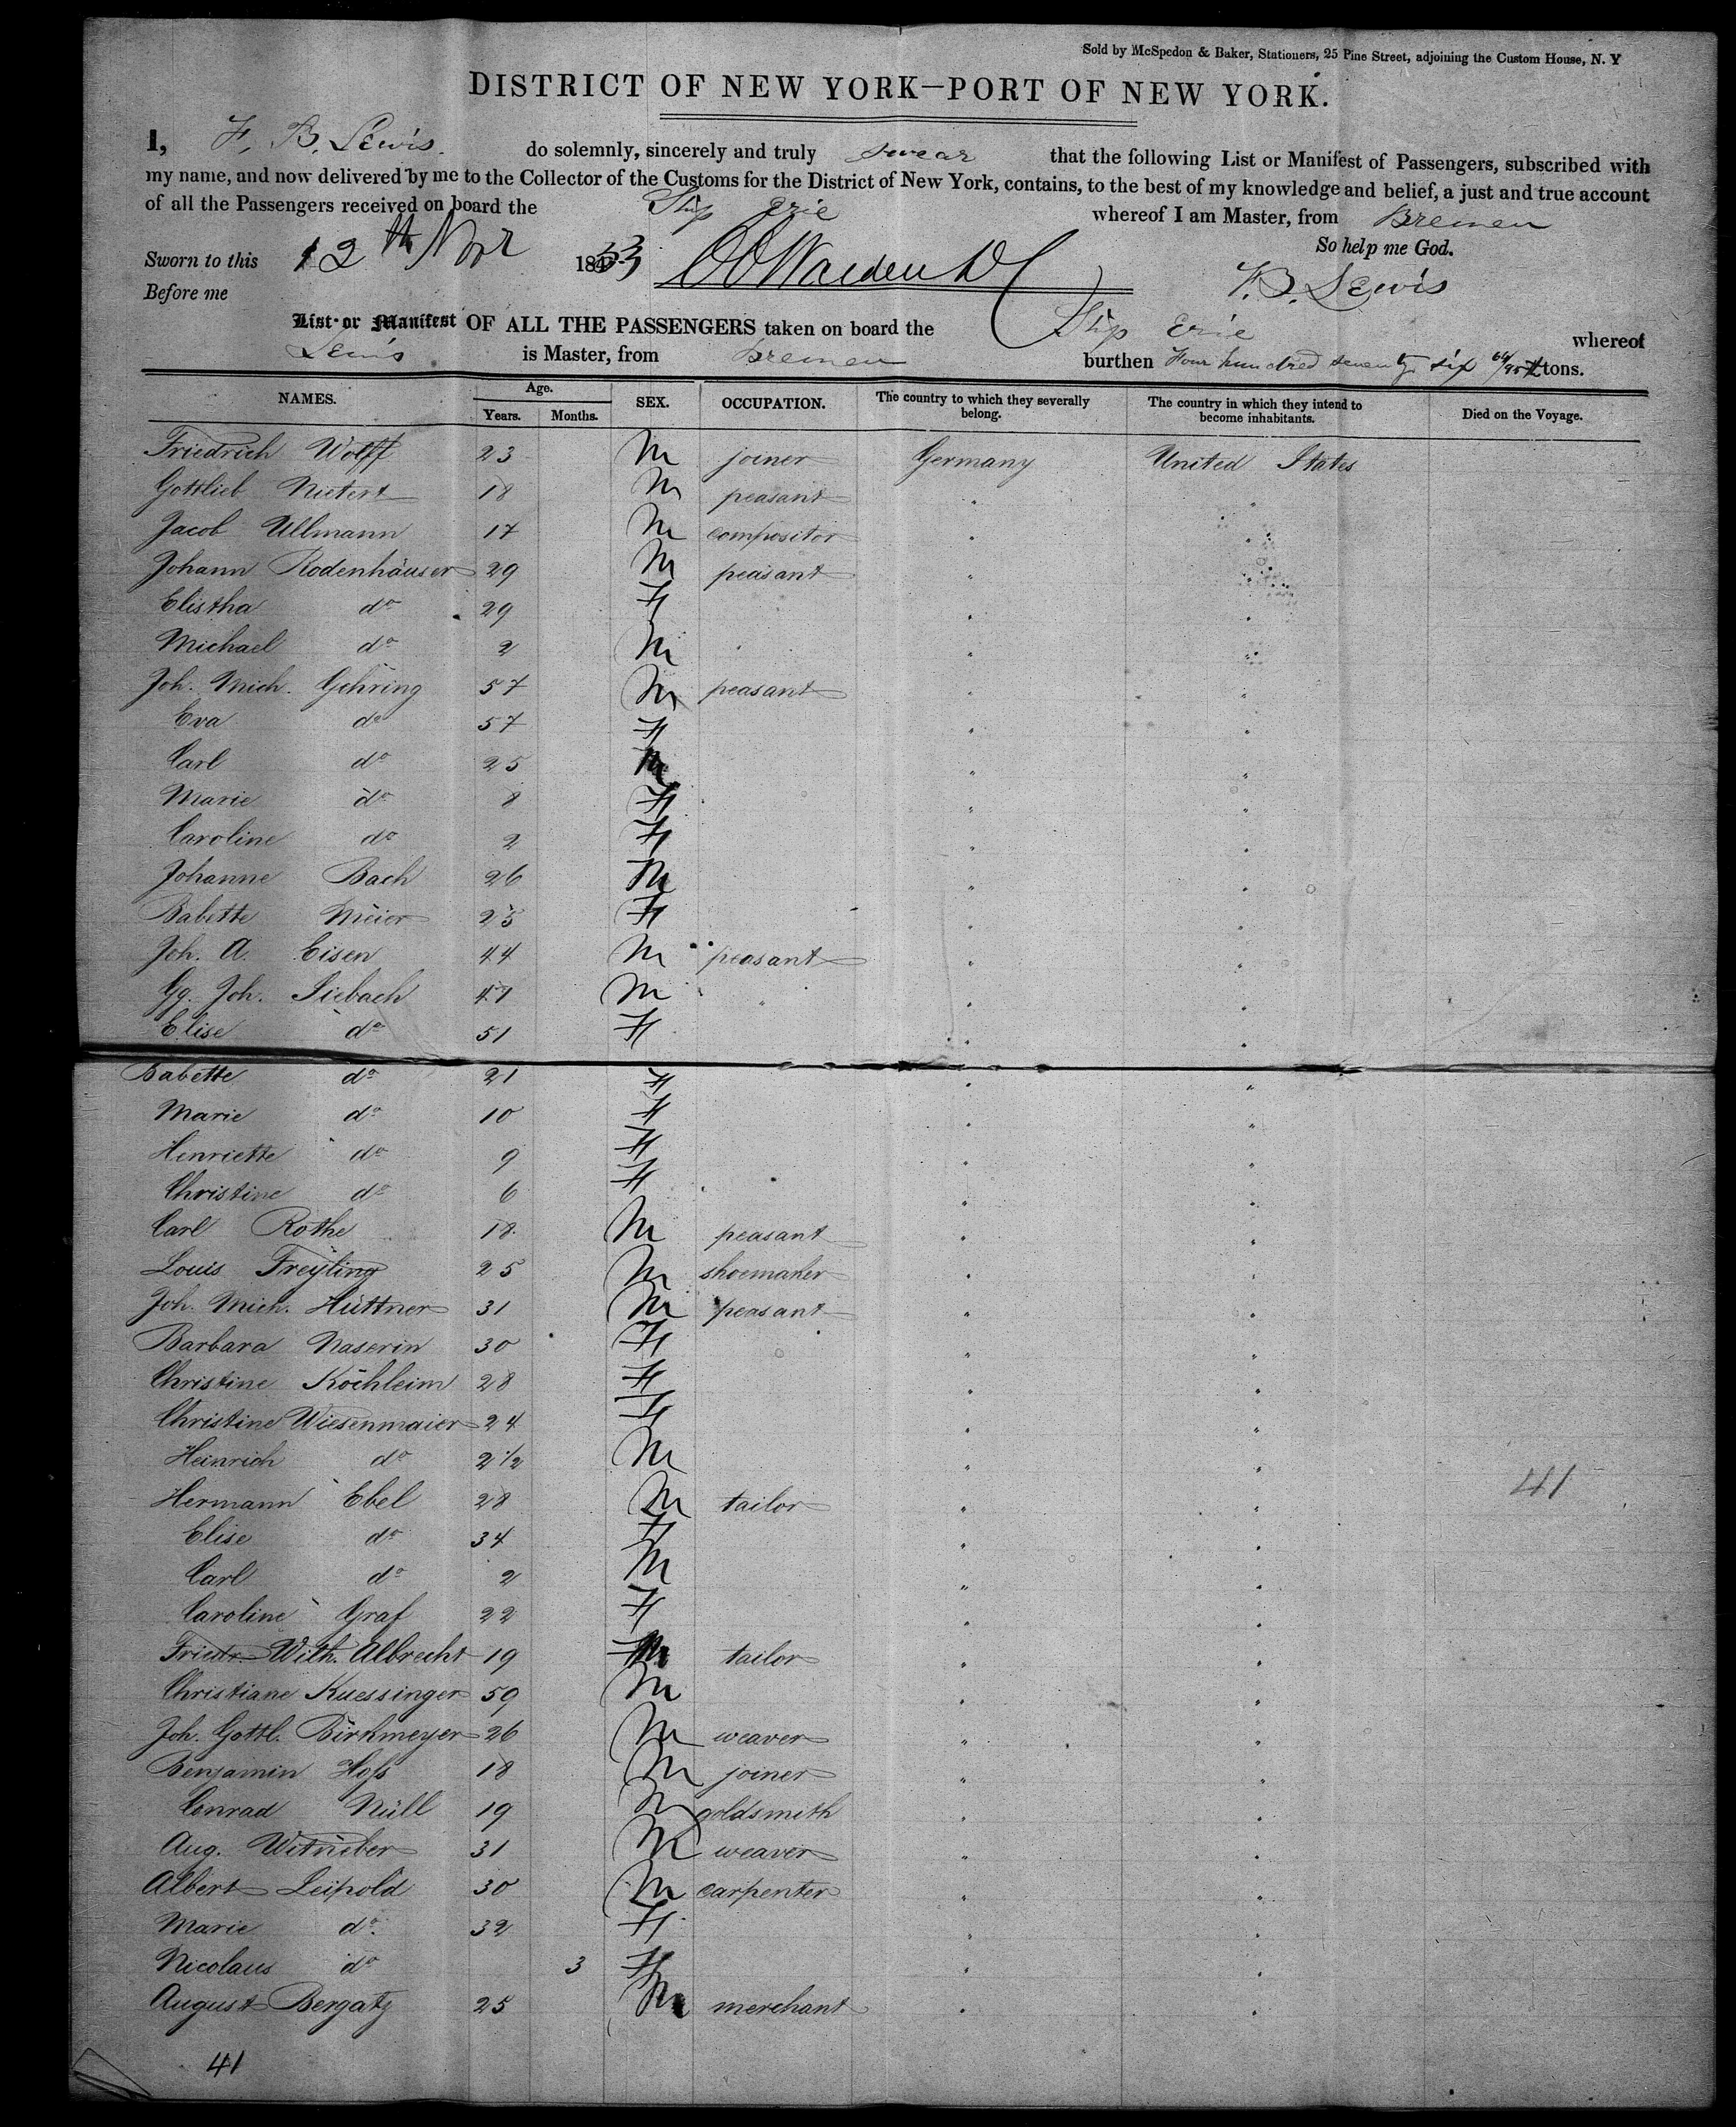 Sold by McSpedon & Baker, Stationers, 25 Pine Street, adjoining the Custom House, N. Y
DISTRICT OF NEW YORK—PORT OF NEW YORK.
I, F. B. Lewis. do solemnly, sincerely and truly swear that the following List or Manifest of Passengers, subscribed with
my name, and now delivered by me to the Collector of the Customs for the District of New York, contains, to the best of my knowledge and belief, a just and true account
of all the Passengers received on board the Ship Erie whereof I am Master, from Bremen
So help me God.
Sworn to this 12th Novr 1853
Before me F. B. Lewis
List or Manifest OF ALL THE PASSENGERS taken on board the Ship Erie whereof
Lewis is Master, from Bremen burthen Four hundred seventy six 64/95 tons.
NAMES. Age. Years. Months. SEX. OCCUPATION. The country to which they severally belong. The country in which they intend to become inhabitants. Died on the Voyage.
Friedrich Wolff 23 M joiner Germany United States
Gottlieb Nietert 18 M peasant " "
Jacob Ullmann 17 M compositor " "
Johann Rodenhäuser 29 M peasant " "
Elistha do 29 F " "
Michael do 2 M " "
Joh. Mich. Gehring 57 M peasant " "
Eva do 57 F " "
Carl do 25 M " "
Marie do 8 F " "
Caroline do 2 F " "
Johanne Bach 26 M " "
Babette Meier 25 F " "
Joh. A. Eisen 44 M peasant " "
Gg. Joh. Siebach 47 M " " "
Elise do 51 F " "
Babette do 21 F " "
Marie do 10 F " "
Henriette do 9 F " "
Christine do 6 F " "
Carl Rothe 18 M peasant " "
Louis Freyling 25 M shoemaker " "
Joh. Mich. Hüttner 31 M peasant " "
Barbara Naserin 30 F " "
Christine Köchleim 28 F " "
Christine Wiesenmaier 24 F " "
Heinrich do 2 1/2 M " "
41
Hermann Ebel 28 M tailor " "
Elise do 34 F " "
Carl do 2 M " "
Caroline Graf 22 F " "
Friedr. Wilh. Albrecht 19 M tailor " "
Christiane Kuessinger 59 M " "
Joh. Gottl. Birkmeyer 26 M weaver " "
Benjamin Hoss 18 M joiner " "
Conrad Nüll 19 M goldsmith "
Aug. Witrieber 31 M weaver " "
Albert Leipold 30 M carpenter " "
Marie do. 32 F " "
Nicolaus do 3 F " "
August Bergatz 25 M merchant " "
41